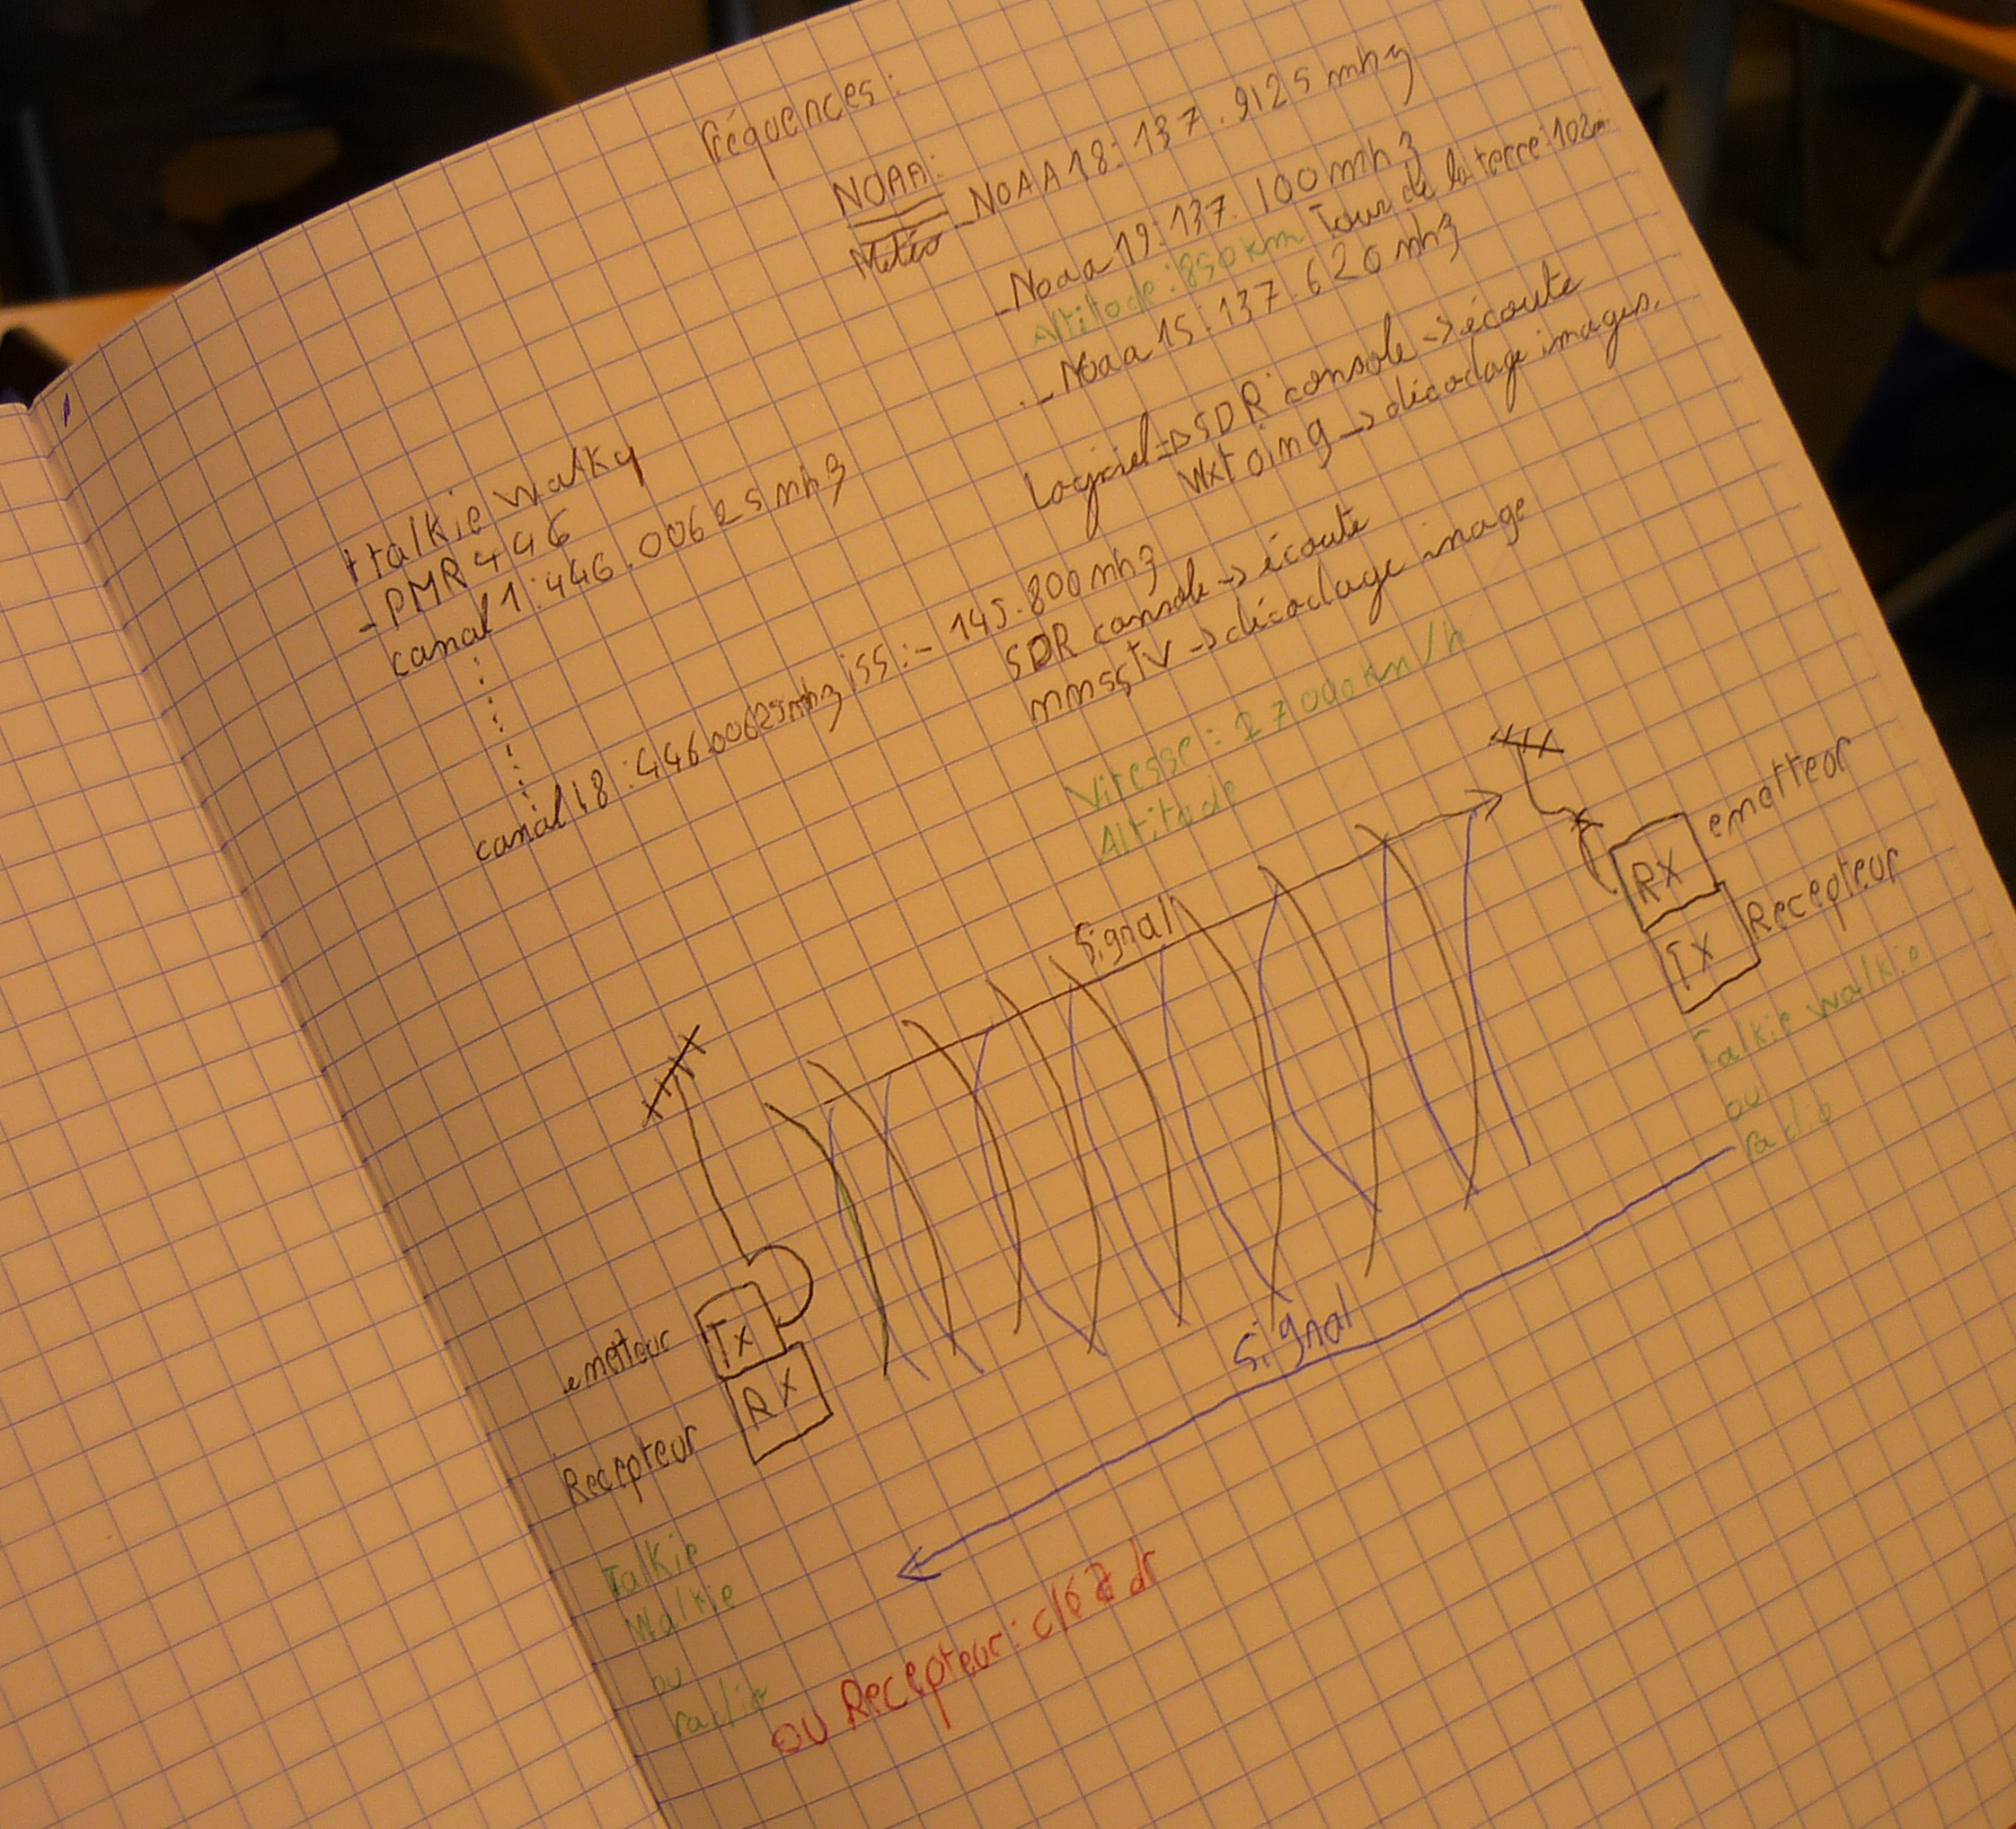 fréquences :
NOAA:
Météo
- NOAA 18: 137.9125 mhz
- Noaa 19: 137.100 mhz
Altitode : 850 km Tour de la terre: 102m
- Noaa 15: 137.620 mhz
Logiciel → SDR console → écoute
Wxtoimg → décodage images.
talkie walky
- PMR 446
canal 1: 446.00625 mhz
canal 18 : 446.00625mhz
iss : - 145.800 mhz
SDR console → écoute
mmsstv → décodage image
Vitesse : 27 000 km/h
Altitude
Signal
RX emetteor
TX Recepteur
Talkie walkie
ou
radio
emetteur Tx
Recepteur RX
Signal
Talkie
Walkie
ou
radio
ou Recepteur: